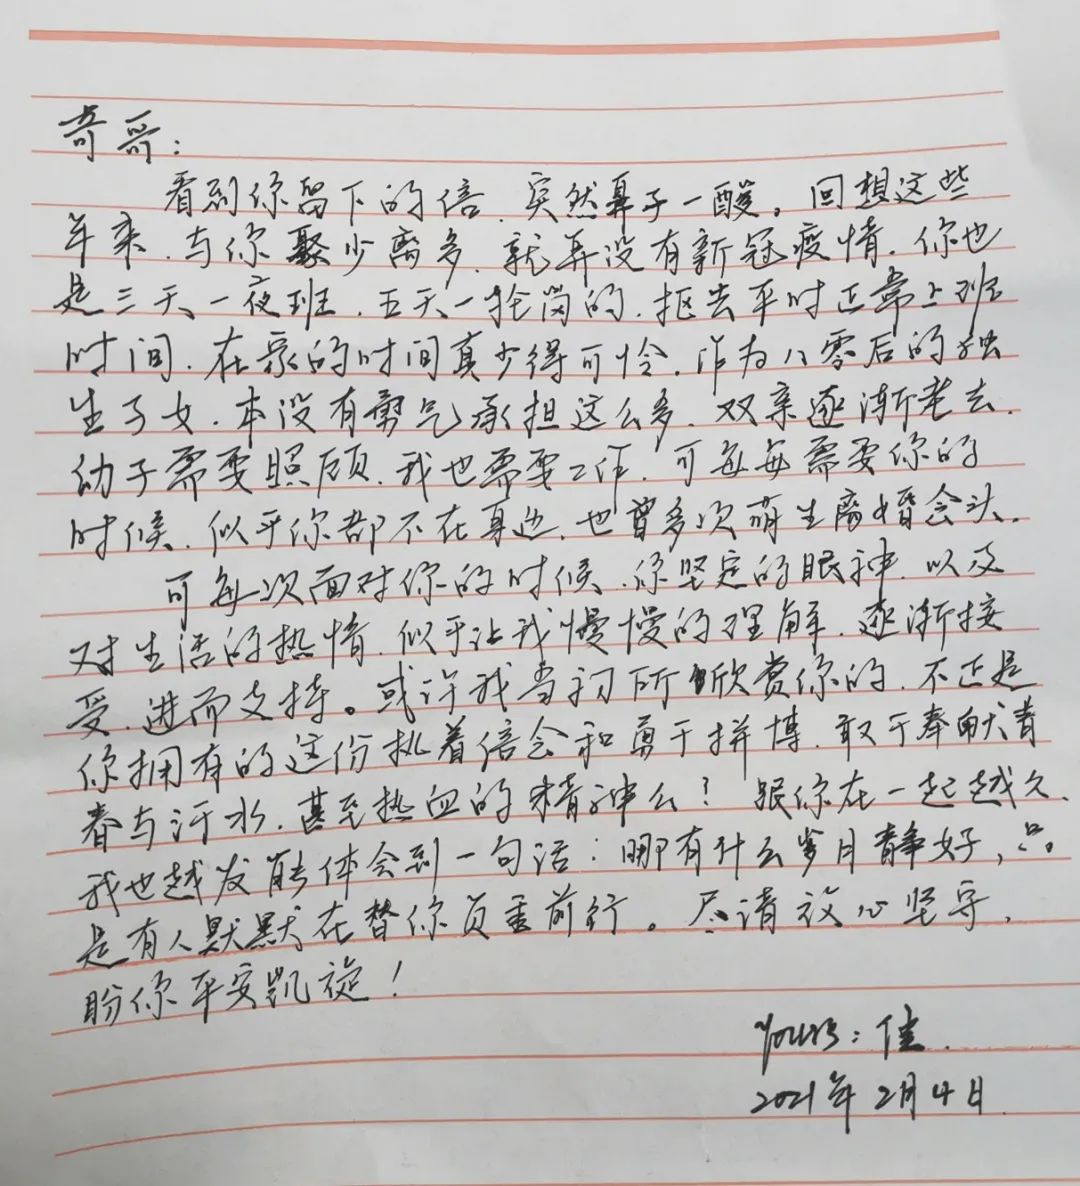 奇哥：
看到你留下的信，突然鼻子一酸。回想这些
年来，与你聚少离多，就算没有新冠疫情，你也
是三天一夜班，五天一抢岗的，抠去平时正常上班
时间，在家的时间真少得可怜，作为八零后的独
生子女，本没有勇气承担这么多，双亲逐渐老去，
幼子需要照顾，我也需要工作，可每每需要你的
时候，似乎你都不在身边，也曾多次萌生离婚念头，
可每次面对你的时候，你坚定的眼神，以及
对生活的热情，似乎让我慢慢的理解，逐渐接
受，进而支持。或许我当初所欣赏你的，不正是
你拥有的这份执着信念和勇于拼博，敢于奉献青
春与汗水，甚至热血的精神么？跟你在一起越久，
我也越发能体会到一句话：哪有什么岁月静好，只
是有人默默在替你负重前行。尽请放心坚守，
盼你平安凯旋！
yours：佳
2021年2月4日